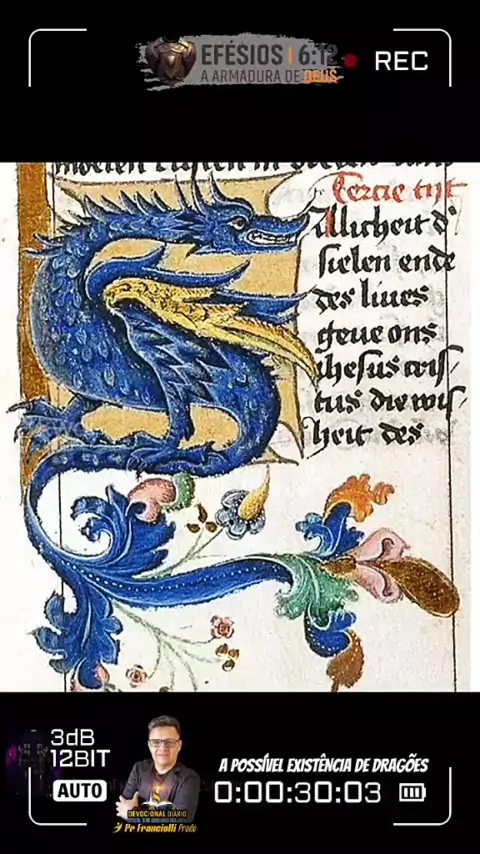 EFÉSIOS 6:12
A ARMADURA DE DEUS
REC
Tercie tijt
Allicheit d'
sielen ende
des liues
gheue ons
ihesus cris/
tus die wijs/
heit des
3dB
12BIT
AUTO
DEVOCIONAL DIÁRIO
Pr Franciolli Prado
A POSSÍVEL EXISTÊNCIA DE DRAGÕES
0:00:30:03